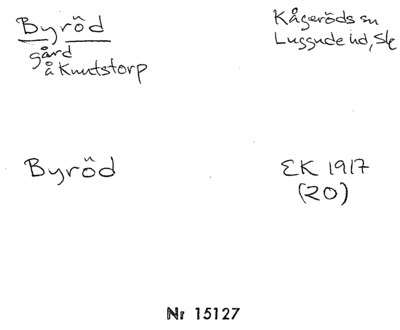 Byröd
Kågeröds sn
gård
Luggude hd, Sk
å Knutstorp
Byröd
EK 1917
(20)
Nr 15127